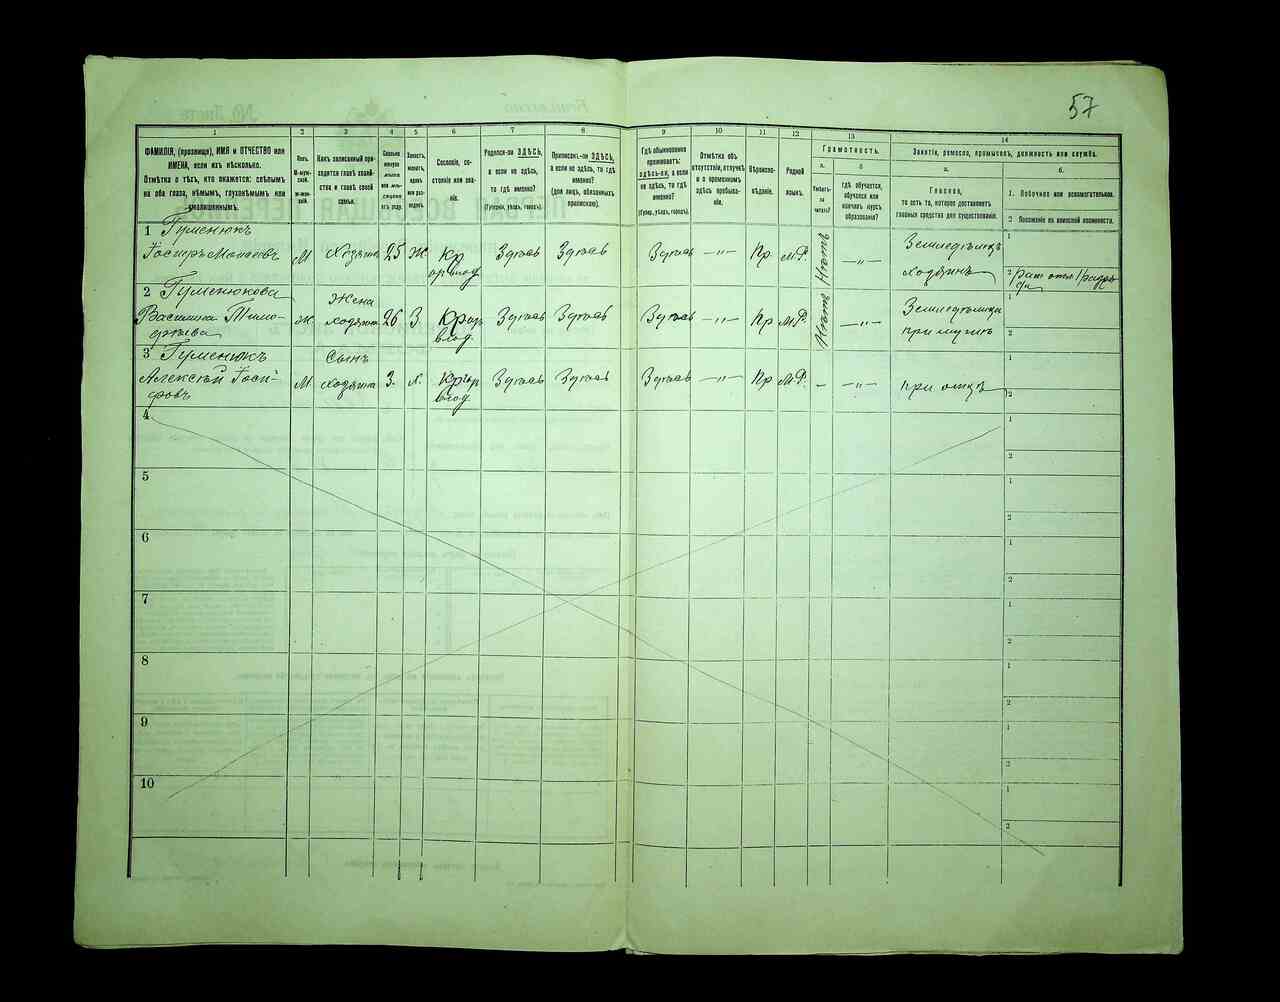 57
1 2 3 4 5 6 7 8 9 10 11 12 13 14
ФАМИЛІЯ, (прозвище), ИМЯ и ОТЧЕСТВО или
ИМЕНА, если ихъ нѣсколько.
Отмѣтка о тѣхъ, кто окажется: слѣпымъ
на оба глаза, нѣмымъ, глухонѣмымъ или
умалишеннымъ.
Полъ.
М-муж-
ской.
Ж-жен-
скій.
Какъ записанный при-
ходится главѣ хозяй-
ства и главѣ своей
семьи.
Сколько
минуло
лѣтъ
или мѣ-
сяцевъ
отъ роду.
Холостъ,
женатъ,
вдовъ
или раз-
веденъ.
Сословіе, со-
стояніе или зва-
ніе.
Родился-ли ЗДѢСЬ,
а если не здѣсь,
то гдѣ именно?
(Губернія, уѣздъ, городъ).
Приписанъ-ли ЗДѢСЬ,
а если не здѣсь, то гдѣ
именно?
(для лицъ, обязанныхъ
припискою).
Гдѣ обыкновенно
проживаетъ:
здѣсь-ли, а если
не здѣсь, то гдѣ
именно?
(Губерн., уѣздъ, городъ).
Отмѣтка объ
отсутствіи, отлучкѣ
и о временномъ
здѣсь пребыва-
ніи.
Вѣроиспо-
вѣданіе.
Родной
языкъ.
Грамотность.
а.
Умѣетъ-
ли
читать?
б
Гдѣ обучается,
обучался или
кончилъ курсъ
образованія?
Занятіе, ремесло, промыселъ, должность или служба.
а.
Главное,
то есть то, которое доставляетъ
главныя средства для существованія.
б.
1. Побочное или вспомогательное.
2 Положеніе по воинской повинности.
1 Гуменюкъ
М Хозяинъ 25 Ж Кр Здѣсь Здѣсь Здѣсь —„— Пр. М.Р. Нѣтъ —„— 1
Хозяинъ
2
2 Гуменюкова
Жена
Ж хозяина 26 З. Здѣсь Здѣсь Здѣсь —„— Пр М.Р. Нѣтъ —„— 1
при мужѣ
2
3 Гуменюкъ
Сынъ
Алексѣй Іоси-
фовъ
М. хозяина 3. Х. Здѣсь Здѣсь Здѣсь —„— Пр М.Р. – —„— при отцѣ 1
2
4 1
2
5 1
2
6 1
2
7 1
2
8 1
2
9 1
2
10 1
2